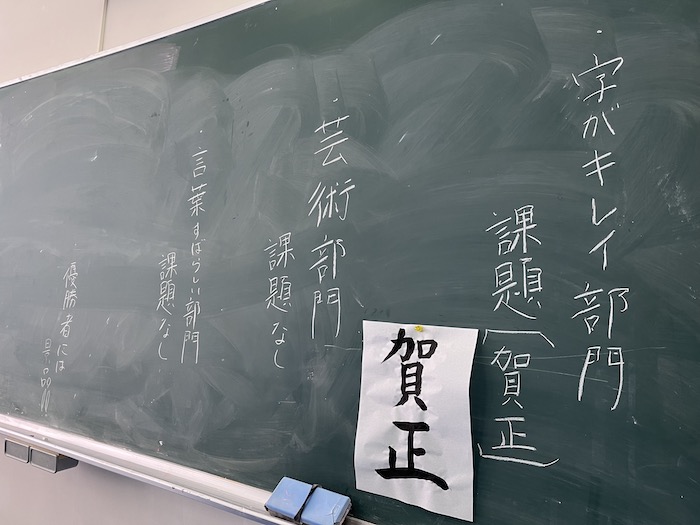 ・字がキレイ部門
課題「賀正」
賀正
・芸術部門
課題なし
・言葉すばらしい部門
課題なし
優勝者には
景品!!